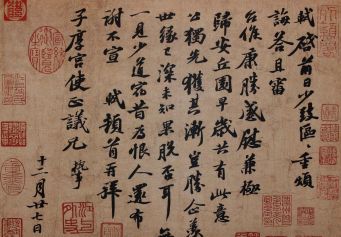 軾啟前日少致區區重煩
誨答且審
台候康勝感慰兼極
歸安丘園早歲共有此意
公獨先獲其漸豈勝企羨
世緣已深未知果脫否耳無
一見少道宿昔為恨人還布
謝不宣 軾頓首再拜
子厚宮使正議兄執事
十二月廿七日